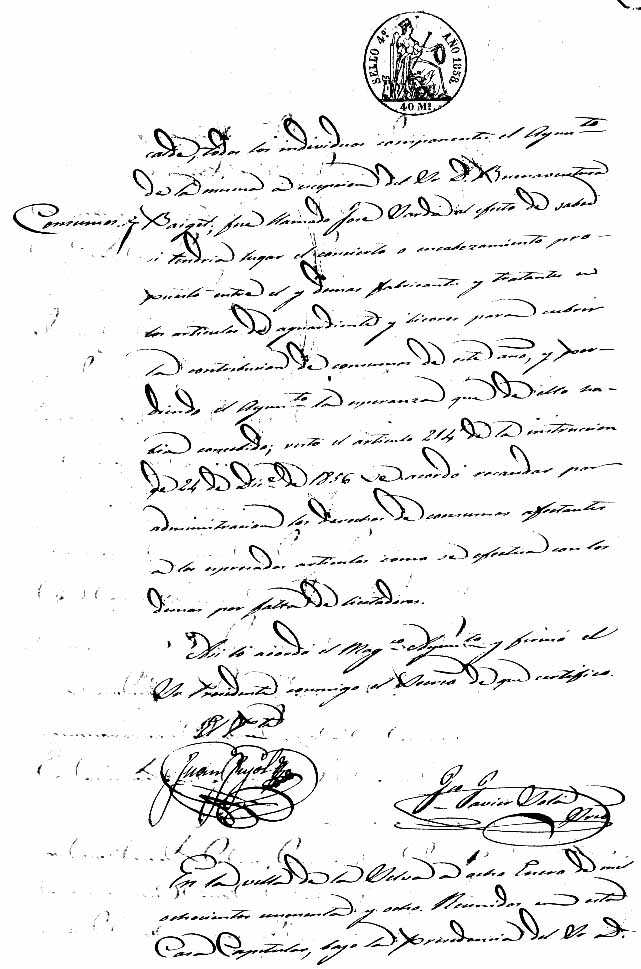 SELLO 4º AÑO 1858.
40 Ms.
calde, todos los individuos componentes el Ayunto
de la misma a excepcion del Sr D. Buenaventura
Consumos. Baiget, fue llamado José Vardá al efecto de saber
si tendria lugar el concierto o encabezamiento pro-
puesto entre el y demas fabricantes y tratantes en
los articulos de aguardiente y licores para cubrir
la contribucion de consumos de este año, y per-
diendo el Ayunto la esperanza que de ello ha-
bia concebido; visto el articulo 214 de la instruccion
de 24 de Dice de 1856 se acordó recaudar por
administracion los derechos de consumos afectantes
a los espresados articulos como se efectua con los
demas por falta de licitadores.
Asi lo acordó el Magco Ayunto y firmó el
Sr Presidente conmigo el Secrio de que certifico.
Juan Pujol
Javier
En la villa de la Selva a ocho Enero de mil
ochocientos cincuenta y ocho. Reunidos en esta
Casa Capitular, bajo la presidencia del Sr